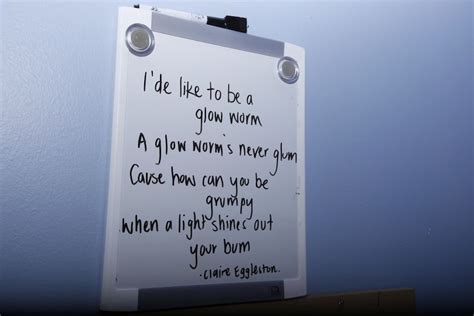 I'de like to be a
glow worm
A glow worm's never glum
Cause how can you be
grumpy
when a light shines out
your bum
- Claire Eggleston.